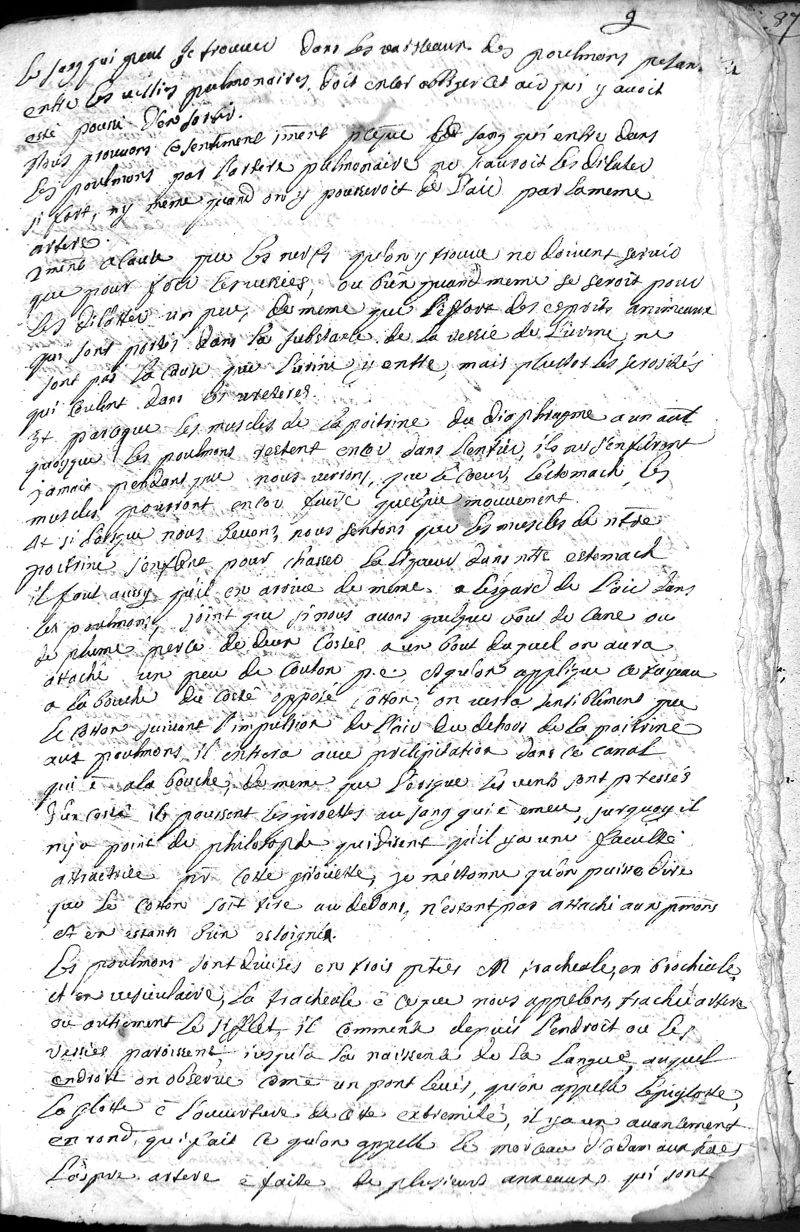 9 87
le sang qui peut se trouver dans les vaisseaux des poulmons
entre les vessies pulmonaires, doit encor obliger cet air qui y avoit
esté poussé d'en sortir.
Nous prouvons ce sentiment 1ment pceque le sang qui entre dans
les poulmons par l'artere pulmonaire ne sauroit les dilater
si fort, ny meme quand on y pousseroit de l'air par la meme
artere.
2ment a cause que les nerfs qu'on y trouve ne doivent servir
que pour les vessies, ou bien quand meme se seroit pour
les dilatter un peu, de meme que l'effort des esprits animeaux
qui sont portés dans la substance de la vessie de l'urine, ne
sont pas la cause que l'urine y entre, mais plustost les serosités
qui coulent dans les ureteres.
Et parceque les muscles de la poitrine du diaphragme
quoyque les poulmons restent encor dans l'entier, ils ne s'enfleront
jamais pendant que nous verrons, que le coeur, l'estomach, les
muscles pourront encor faire quelque mouvement.
Et si lorsque nous beuvons, nous sentons que les muscles de nôtre
poitrine s'enflent pour chasser la liqueur dans nôtre estomach
il faut aussy qu'il en arrive de meme a l'egard de l'air dans
les poulmons, joint que si nous avons quelque bout de cane ou
de plume percé de deux costés a un bout duquel on aura
ataché un peu de couton p.e. et qu'on applique ce tuyeau
a la bouche du costé opposé on verra sensiblement que
le cotton suivant l'impulsion de l'air du dehors de la poitrine
aux poulmons, il entrera avec précipitation dans ce canal
qui ê a la bouche, de meme que lorsque les vents sont pressés
d'un costé ils poussent les au sang qui ê emeu, surquoy il
n'y a point de philosophe qui disent qu'il y a une faculté
attractrice pr cette girouette, je m'estonne qu'on puisse dire
que le cotton soit tiré au dedans, n'estant pas attaché aux pmons
et en estant bien esloigné.
Les poulmons sont divisés en trois pties en tracheale, en brochiale,
et en vesiculaire, la tracheale ê ce que nous appelons trachée artere
ou autrement le sifflet, il commence depuis l'endroit ou les
vessies paroissent jusqu'a la naissence de la langue, auquel
endroit on observe come un pont levis, qu'on appelle l'epiglotte,
la glotte ê l'ouverture de cete extremité, il y a un avancement
en rond, qui fait ce qu'on appelle le morceau d'adam aux hoes
l'aspre artere ê faite de plusieurs anneaux qui sont